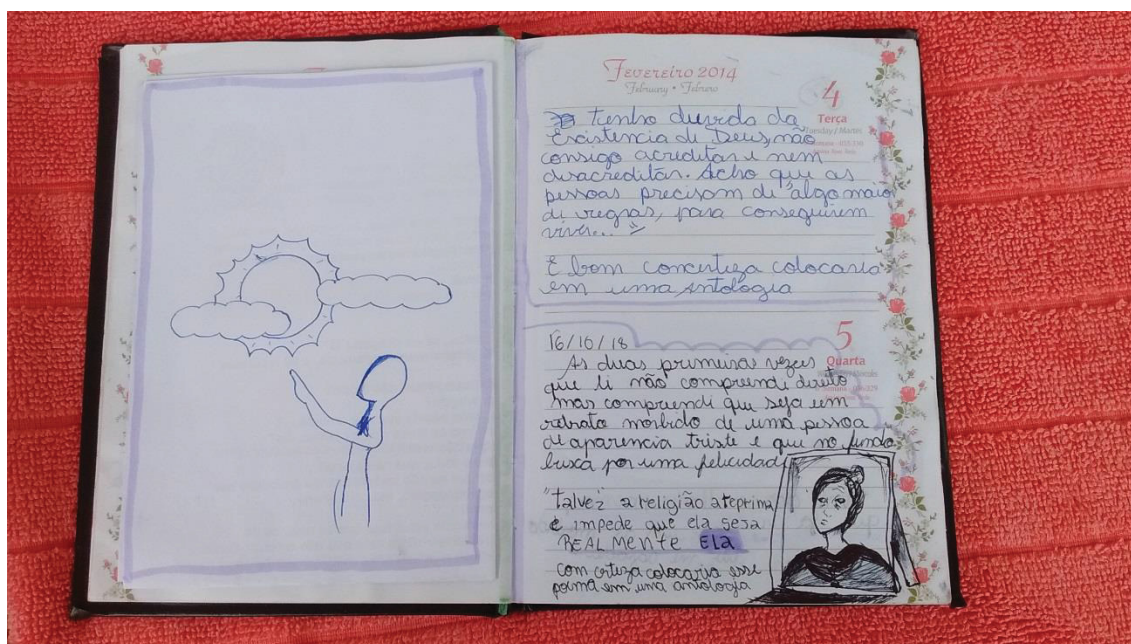 Fevereiro 2014
February • Febrero
4
Terça
Tuesday / Martes
tenho duvida da
Existencia de Deus, não
consigo acreditar e nem
disacreditar. Acho que as
pessoas precisam de "algo maior
de regras, para conseguirem
viver..."
E bom concerteza colocaria
em uma Antologia
5
Quarta
16/10/18
As duas primeiras vezes
que li não compreendi direito
mas compreendi que seja um
retrato morbido de uma pessoa
de aparencia triste e que no fundo
busca por uma felicidade
"talvez" a religião a reprima
e impede que ela seja
REALMENTE Ela
com certeza colocaria esse
poema em uma antologia